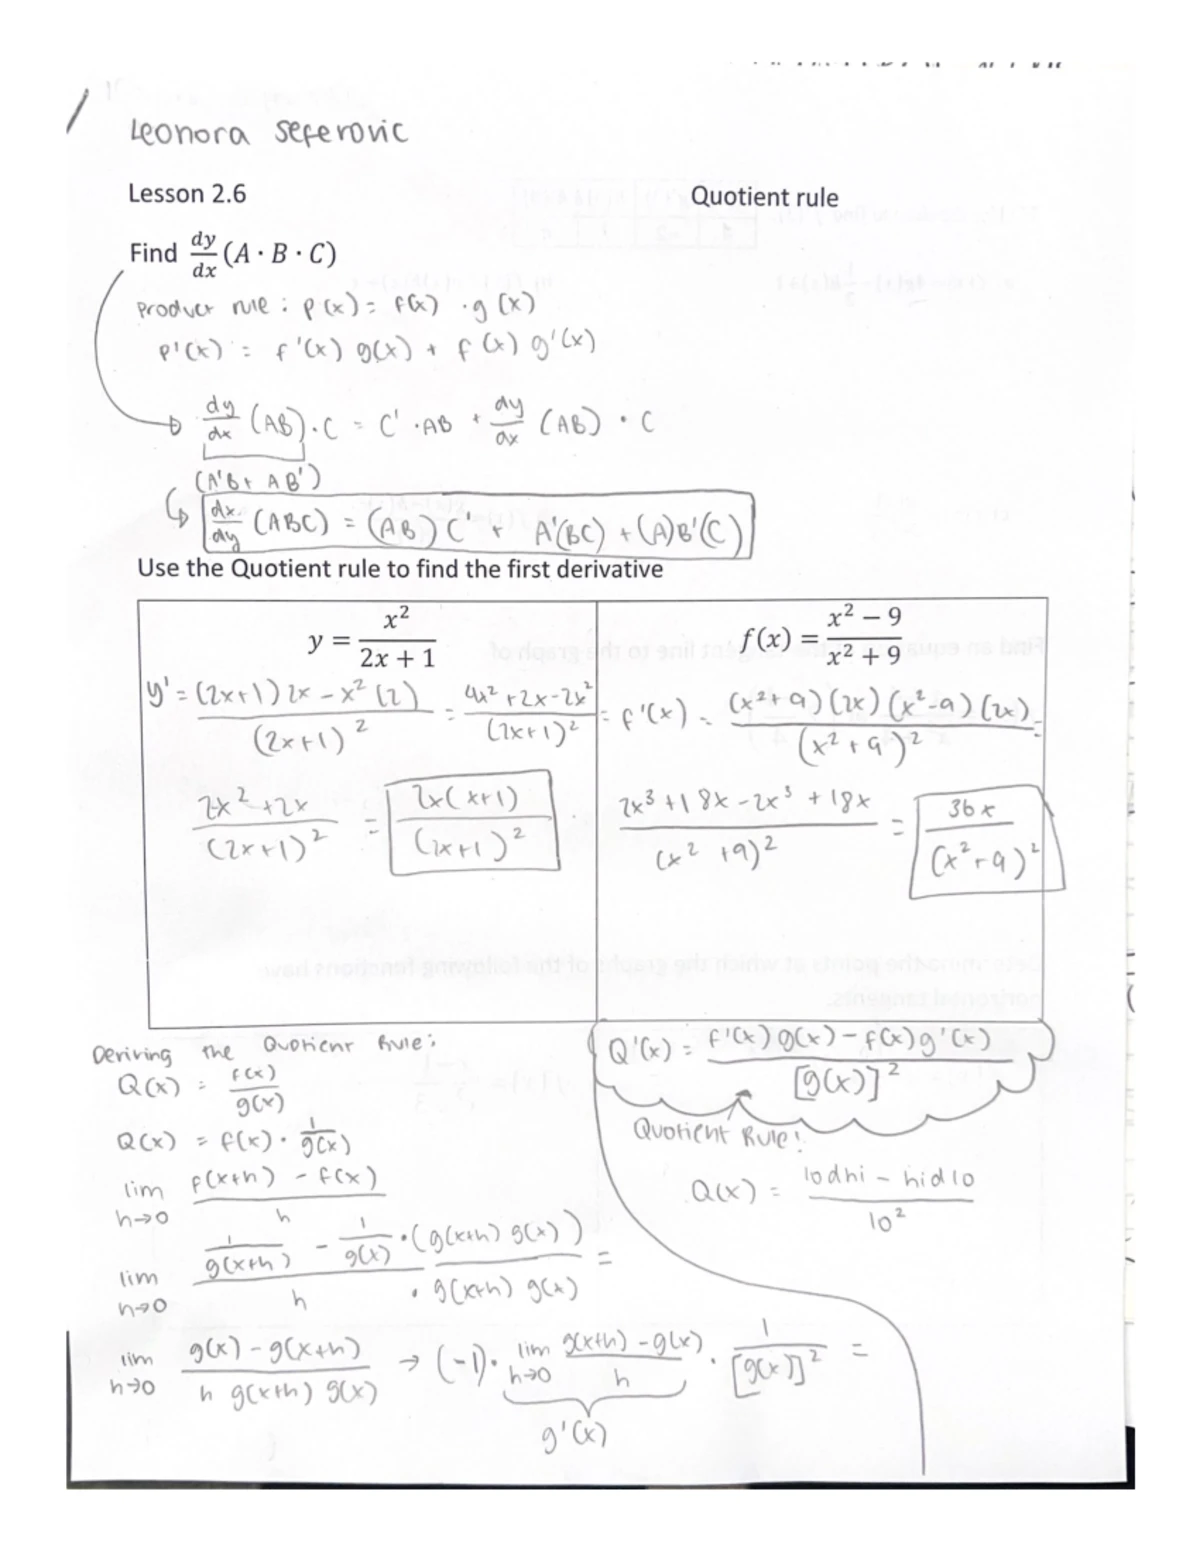 Leonora Seferovic
Lesson 2.6
Quotient rule
Find dy/dx (A · B · C)
Product rule : p(x) = f(x) · g(x)
p'(x) = f'(x) g(x) + f(x) g'(x)
dy/dx (AB) · C = C' · AB + dy/dx (AB) · C
(A'B + AB')
dx/dy (ABC) = (AB)C' + A'(BC) + (A)B'(C)
Use the Quotient rule to find the first derivative
y = x²/(2x + 1)
y' = ((2x+1)2x − x²(2))/(2x+1)² = (4x² + 2x − 2x²)/(2x+1)² =
(2x² + 2x)/(2x+1)² = 2x(x+1)/(2x+1)²
f(x) = (x² − 9)/(x² + 9)
f'(x) = (x²+9)(2x)(x²−9)(2x)/(x²+9)² =
(2x³ + 18x − 2x³ + 18x)/(x² + 9)² = 36x/(x²+9)²
Deriving the Quotient Rule:
Q(x) = f(x)/g(x)
Q(x) = f(x) · 1/g(x)
lim h→0 (f(x+h) − f(x))/h
lim h→0 (1/g(x+h) − 1/g(x))/h · (g(x+h) g(x))/(g(x+h) g(x)) =
lim h→0 (g(x) − g(x+h))/(h g(x+h) g(x)) → (−1) · lim h→0 (g(x+h) − g(x))/h · 1/[g(x)]² =
g'(x)
Q'(x) = (f'(x)g(x) − f(x)g'(x))/[g(x)]²
Quotient Rule!
Q(x) = (lodhi − hidlo)/lo²